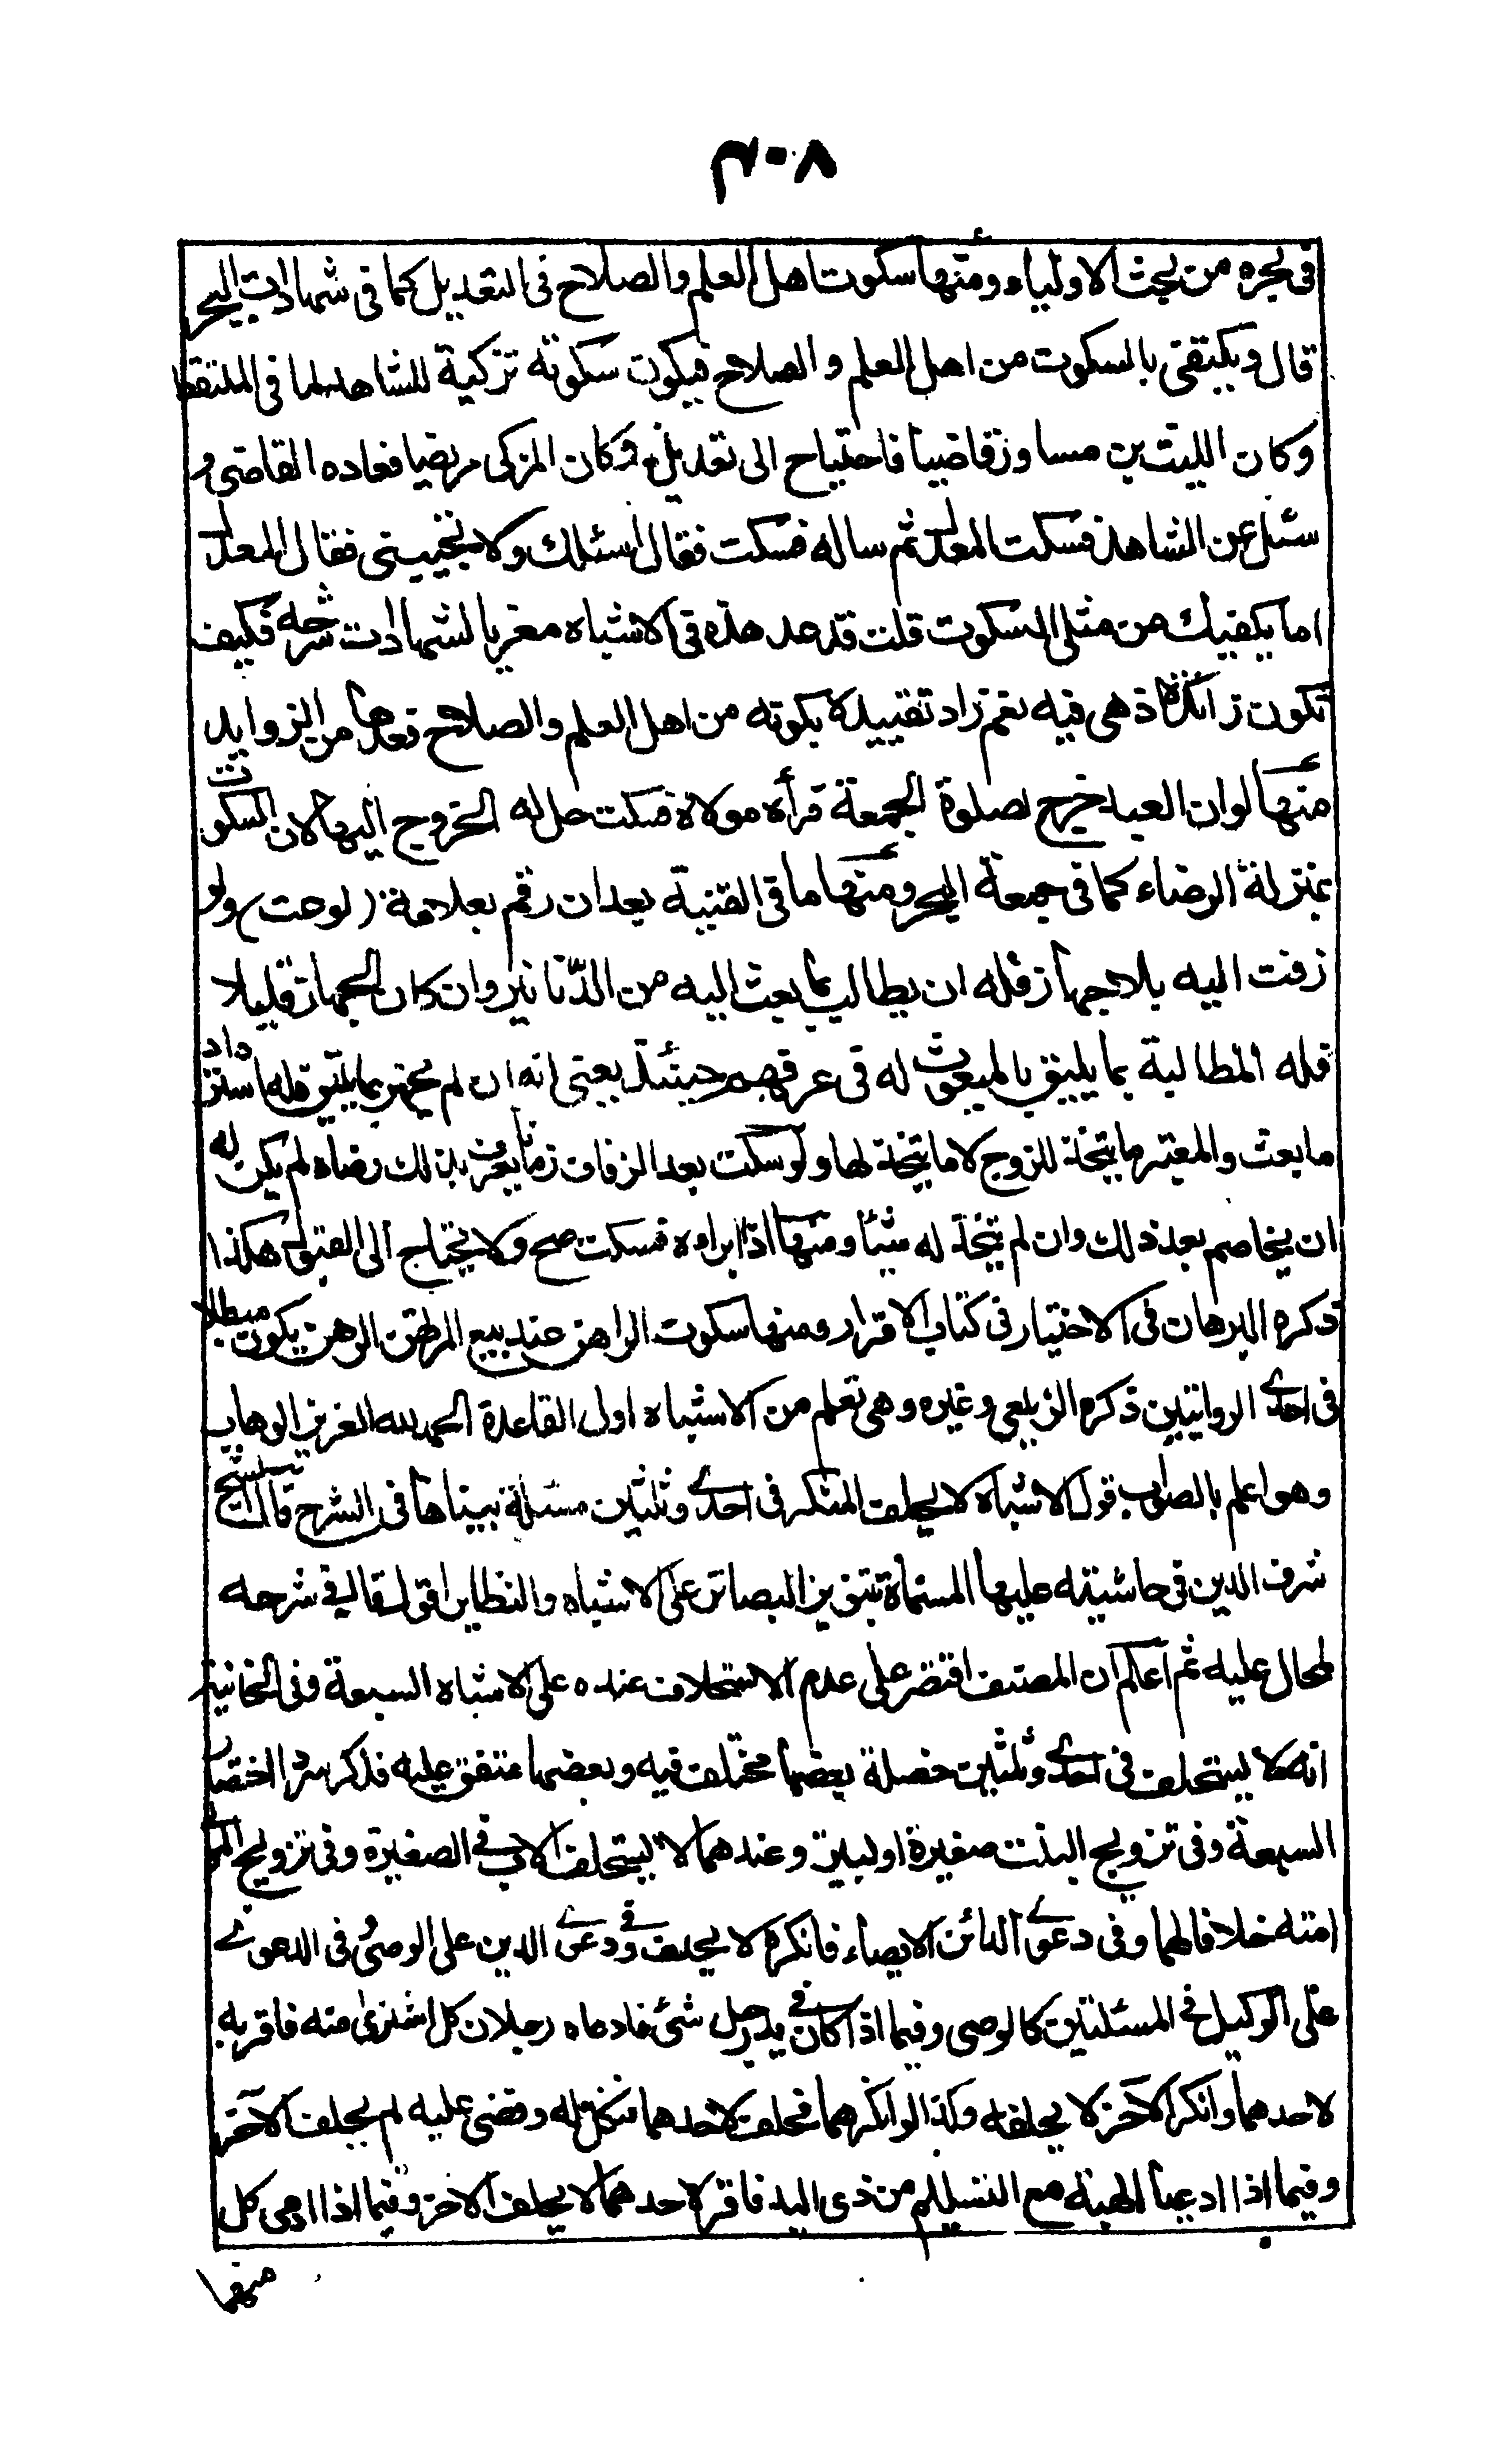 ٣٠٨
فى بحره من بحث الاولياء ومنها سكوت اهل العلم والصلاح فى التعديل كما فى شهادات البحر
قال ويكتفى بالسكوت من اهل العلم والصلاح فيكون سكوته تزكية للشاهد لما فى الملتقط
وكان الليث بن مساور قاضيا فاحتياح الى تعديل وكان المزكى مريضا فعاده القاضى و
سئل عن الشاهد فسكت المعدل ثم ساله فسكت فقال اسئلك ولا تجيبنى فقال المعدل
اما يكفيك من مثلى السكوت قلت قد عد هذه فى الاشباه معزيا لشهادات شرحه فكيف
تكون زائدة اذ هى فيه نعم زاد تقييده بكونه من اهل العلم والصلاح فعدها من الزوايد
منها لو ان العبد خرج لصلوة الجمعة فرأه مولاه فسكت حل له الخروج اليها لان السكوت
بمنزلة الرضاء كما فى جمعة البحر ومنها ما فى القنية بعد ان رقم بعلامة (لوحت) ولو
زفت اليه بلا جهاز فله ان يطالب بما بعث اليه من الدنانير وان كان الجهاز قليلا
فله المطالبة بما يليق بالمبعوث له فى عرفهم حينئذ يعنى انه ان لم يجهز بما يليق فله استرداد
ما بعث والمعتبر ما يتخذ للزوج لا ما يتخذ لها ولو سكت بعد الزفاف زمانا يعرف بذلك رضاه لم يكن له
ان يخاصم بعد ذلك وان لم يتخذ له شيئا ومنها اذا ابراءه فسكت صح ولا يحتاج الى القبول هكذا
ذكره البرهان فى الاختيار فى كتاب الاقرار ومنها سكوت الراهن عند بيع المرتهن الرهن يكون مبطلا
فى احدى الروايتين ذكره الزيلعى وغيره وهى تعلم من الاشباه اول القاعدة الحمد لله العزيز الوهاب
وهو اعلم بالصواب قول الاشباه لا يحلف المنكر فى احدى وثلثين مسئلة بيناها فى الشرح قال الشيخ
شرف الدين فى حاشيته عليها المسماة بتنوير البصائر على الاشباه والنظاير اقول قال فى شرحه
المحال عليه ثم اعلم ان المصنف اقتصر على عدم الاستحلاف عنده على الاشباه السبعة وفى الخانية
انه لا يستحلف فى احدى وثلثين خصلة بعضها مختلف فيه وبعضها متفق عليه فذكر سردا اختصارا
السبعة وفى تزويج البنت صغيرة او كبيرة وعندهما لا يستحلف الاب فى الصغيرة وفى تزويج المولى
امته خلافا لهما وفى دعوى الدائن الايصاء فانكره لا يحلف وفى دعوى الدين على الوصى فى الدعوى
على الوكيل فى المسئلتين كالوصى وفيما اذا كان فى يد رجل شئ فادعاه رجلان كل اشترى منه فاقر به
لاحدهما وانكر الآخر لا يحلفه وكذا لو انكرهما فحلف لاحدهما فنكل له وقضى عليه لم يحلف الآخر
وفيما اذا ادعيا الهبة مع التسليم من ذى اليد فاقر لاحدهما لا يحلف الاخر وفيما اذا ادعى كل
منهما